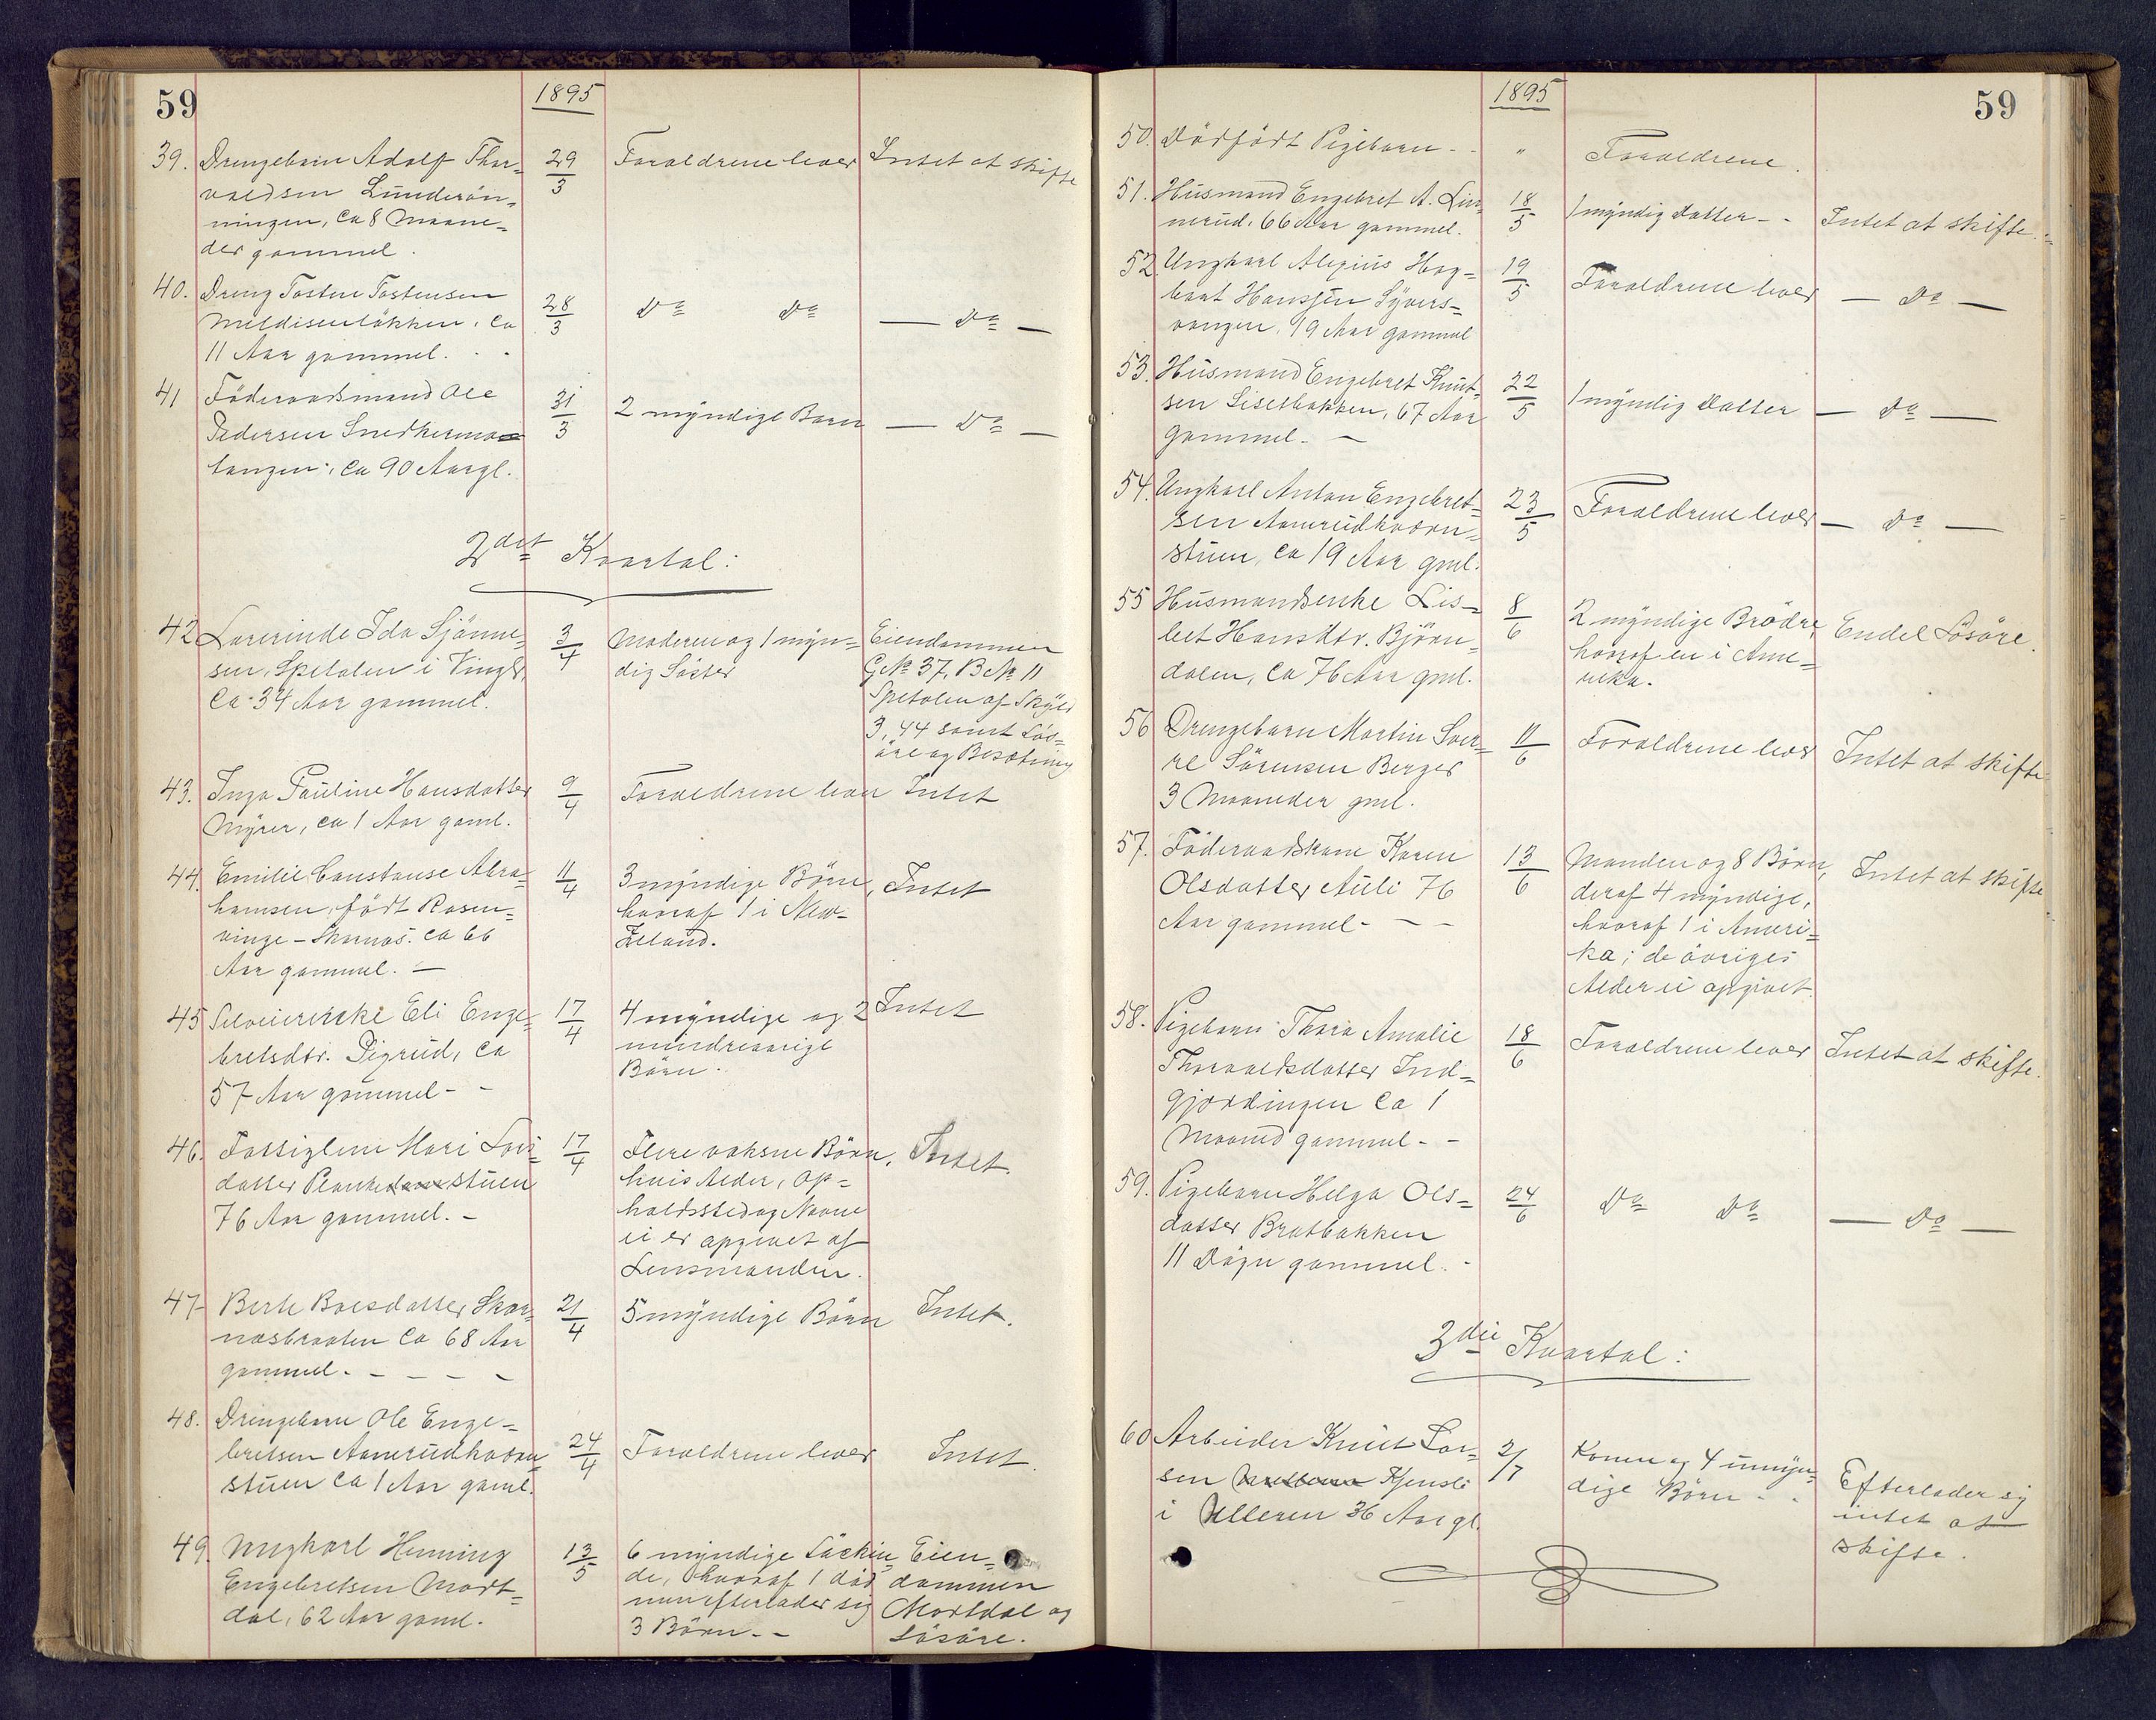 59
1895
39. Drengebarn Adolf Thor-
valdsen Lunderön-
ningen, ca 8 Maane-
der gammel.
29/3
Forældrene lever
Intet at skifte
40. Dreng Tosten Tostensen
Meldisenlökken, ca
11 Aar gammel.
28/3
Do Do
— Do —
41 Föderaadsmand Ole
Pedersen Snedkermo
tangen, ca 90 Aar gl.
31/3
2 myndige Børn
— Do —
2det Kvartal:
42 Lærerinde Ida Sjönne-
sen, Spetalen i Vinger,
ca 34 Aar gammel.
3/4
Moderen og 1 myn-
dig Söster
Eiendommen
G.No 37, B.No 11
Spetalen af Skyld
3,44 samt Lös-
öre og Besætning
43. Inga Pauline Hansdatter
Myrer, ca 1 Aar gaml.
9/4
Forældrene lever
Intet
44. Emilie Constanse Abra-
hamsen, födt Rosen-
vinge - Skarnæs. ca 66
Aar gammel. —
11/4
3 myndige Börn,
hvoraf 1 i New-
Zeland.
Intet
45 Selveierenke Eli Enge-
bretsdtr. Digerud, ca
57 Aar gammel - -
17/4
4 myndige og 2
mindreaarige
Börn.
Intet
46. Fattiglem Mari
datter stuen
76 Aar gammel. -
17/4
Flere voksne Börn,
hvis Alder, Op-
holdssted og Navne
ei er opgivet af
Lensmanden.
Intet.
47 Berte Boesdatter Skar-
næsbraaten ca 68 Aar
gammel. - - - -
21/4
5 myndige Börn
Intet.
48. Drengebarn Ole Enge-
bretsen Aamrudkværn-
stuen ca 1 Aar gaml.
24/4
Forældrene lever
Intet.
49. Ungkarl Henning
Engebretsen Mort-
dal, 62 Aar gaml.
13/5
6 myndige Söskin-
de, hvoraf 1 död
men efterlader sig
3 Börn. -
Eien-
dommen
Mortdal og
Lösöre.
59
1895
50. Dödfödt Pigebarn - -
"
Forældrene.
51. Husmand Engebret A. Lin-
nerud, 66 Aar gammel.
18/5
1 myndig Datter - -
Intet at skifte.
52. Ungkarl Alexius Hag-
bart Hansen Syvers-
vangen, 19 Aar gammel
19/5
Forældrene lever
— Do —
53. Husmand Engebret Knut-
sen Lisetbakken, 67 Aar
gammel. —
22/5
1 myndig Datter
— Do —
54. Ungkarl Anton Engebret-
sen Aamrudkværn-
stuen, ca 19 Aar gml.
23/5
Forældrene lever
— Do —
55 Husmandsenke Lis-
bet Hansdtr. Björn-
dalen, ca 76 Aar gml.
8/6
2 myndige Brödre,
hvoraf en i Ame-
rika.
Endel Lösöre.
56 Drengebarn Martin Sver-
re Sörensen Berger
3 Maaneder gml.
11/6
Forældrene lever
Intet at skifte
57. Föderaadskone Karen
Olsdatter Auli 76
Aar gammel - - -
13/6
Manden og 8 Börn,
deraf 4 myndige,
hvoraf 1 i Ameri-
ka; de övriges
Alder ei opgivet.
Intet at skifte
58. Pigebarn Thora Amalie
Thorvaldsdatter Ind-
gjærdingen ca 1
Maaned gammel - -
18/6
Forældrene lever
Intet at skifte.
59. Pigebarn Helga Ols-
datter Bratbakken
11 Dögn gammel. -
24/6
Do Do
— Do —
3die Kvartal:
60 Arbeider Knut Lar-
sen Kjensli
i Ulleren 36 Aar gl.
2/7
Konen og 4 umyn-
dige Börn - -
Efterlader sig
intet at
skifte.